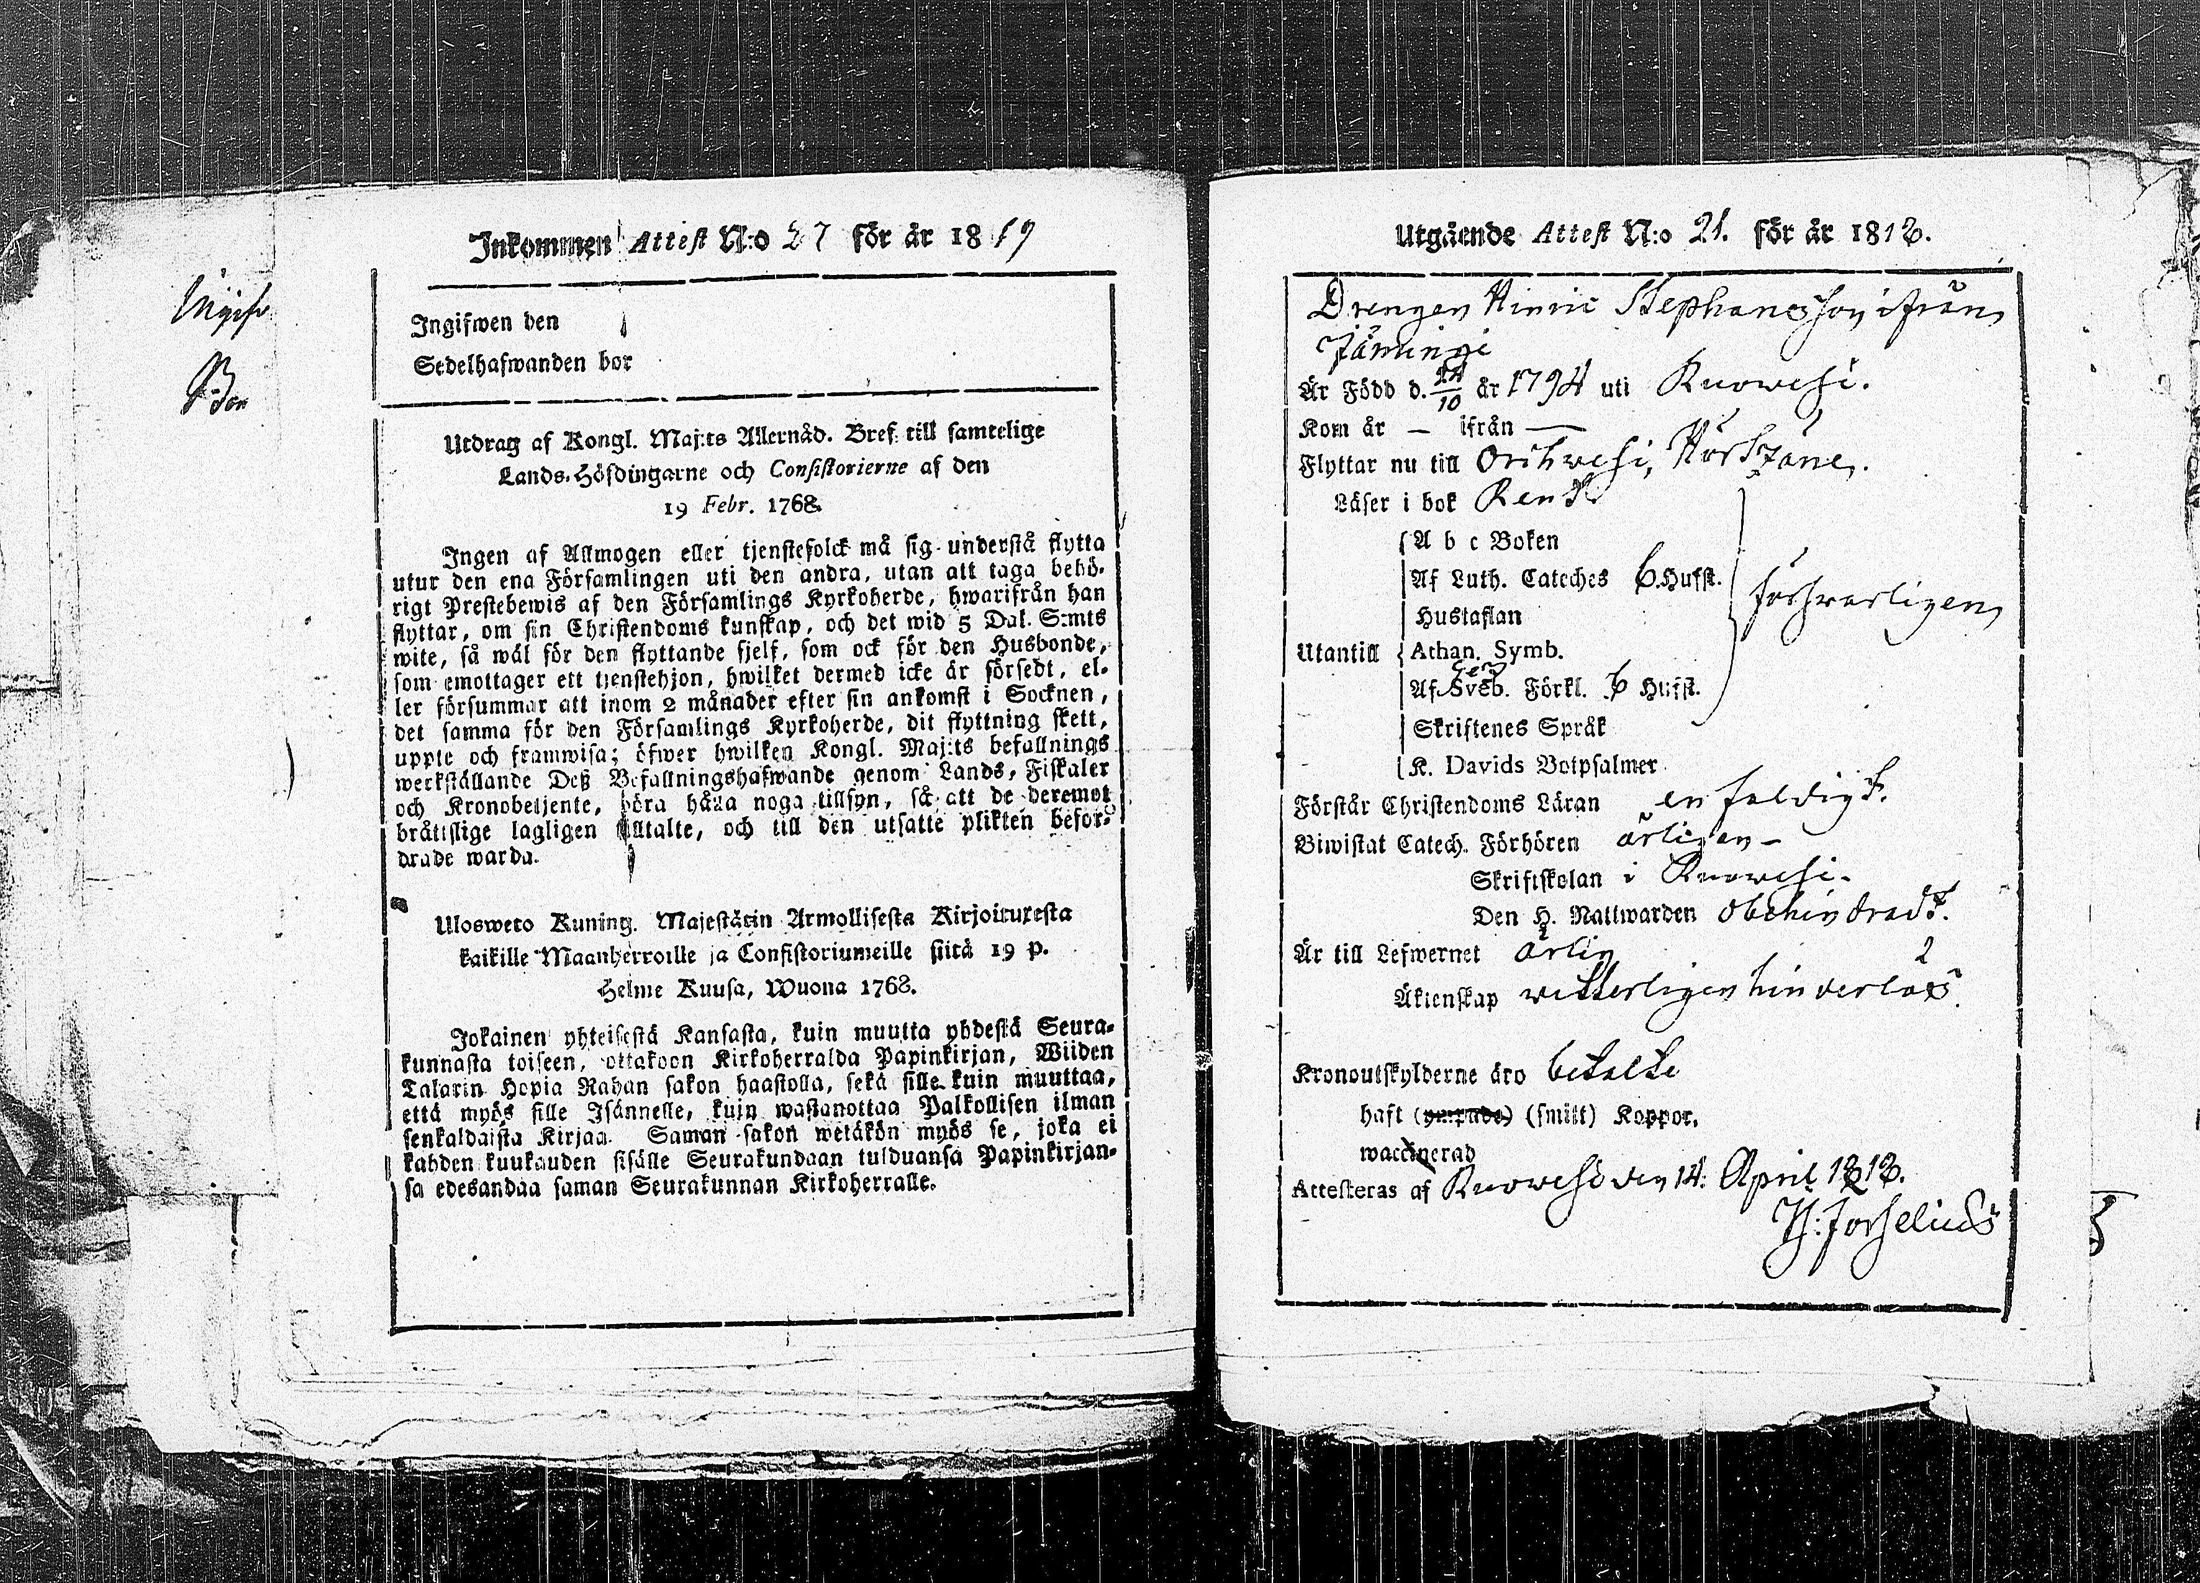 Inkommen Attest N:o 27 för år 1819
Ingifwen den
Sedelhafwanden bor
Utdrag af Kongl. Maj:ts Allernåd. Bref till samtelige
Lands-Höfdingarne och Consistorierne af den
19 Febr. 1768.
Ingen af Allmogen eller tjenstefolck må sig understå flytta
utur den ena Församlingen uti den andra, utan att taga behö-
rigt Prestebewis af den Församlings Kyrkoherde, hwarifrån han
flyttar, om sin Christendoms kunskap, och det wid 5 Dal. S:mts
wite, så wäl för den flyttande sjelf, som ock för den Husbonde,
som emottager ett tjenstehjon, hwilket dermed icke är försedt, el-
ler försummar att inom 2 månader efter sin ankomst i Socknen,
det samma för den Församlings Kyrkoherde, dit flyttning skett,
uppte och framwisa; öfwer hwilken Kongl. Maj:ts befallnings
werkställande Deß Befallningshafwande genom Lands, Fiskaler
och Kronobetjente, böra hålla noga tillsyn, så att de deremot
bråttslige lagligen tilltalte, och till den utsatte plikten befor-
drade warda.
Ulosweto Kuning. Majestätin Armollisesta Kirjoituxesta
kaikille Maanherroille ja Consistoriumeille siitä 19 p.
Helme Kuusa, Wuona 1768.
Jokainen yhteisestä Kansasta, kuin muutta yhdestä Seura-
kunnasta toiseen, ottakoon Kirkoherralda Papinkirjan, Wiiden
Talarin Hopia Rahan sakon haastolla, sekä sille kuin muuttaa,
että myös sille Isännelle, kuin wastanottaa Palkollisen ilman
senkaldaista Kirjaa. Saman sakon wetäkön myös se, joka ei
kahden kuukauden sisälle Seurakundaan tulduansa Papinkirjan-
sa edesandaa saman Seurakunnan Kirkoherralle.
Utgående Attest N:o 21. för år 1818.
Drengen Hinric Stephansson ifrån
Jäminge
Är Född d. 24/10 år 1794 uti Ruowesi.
Kom år — ifrån —
Flyttar nu till Orihwesi,
Läser i bok Rent
A b c Boken
Af Luth. Cateches 6. Hufst.
Hustaflan
försvarligen
Utantill Athan. Symb.
Af Sveb. Förkl. 6 Hufst.
Skriftenes Språk
K. Davids Botpsalmer
Förstår Christendoms Läran enfaldigt.
Biwistat Catech. Förhören årligen –
Skriftskolan i Ruowesi.
Den H. Nattwarden obehindradt.
Är till Lefwernet ärlig
Äktenskap witterligen hinderlös
Kronoutskylderne äro betalte
haft (ympade) (smitt) Koppor.
waccinerad
Attesteras af Ruowesi den 14. April 1818.
H: Forselius